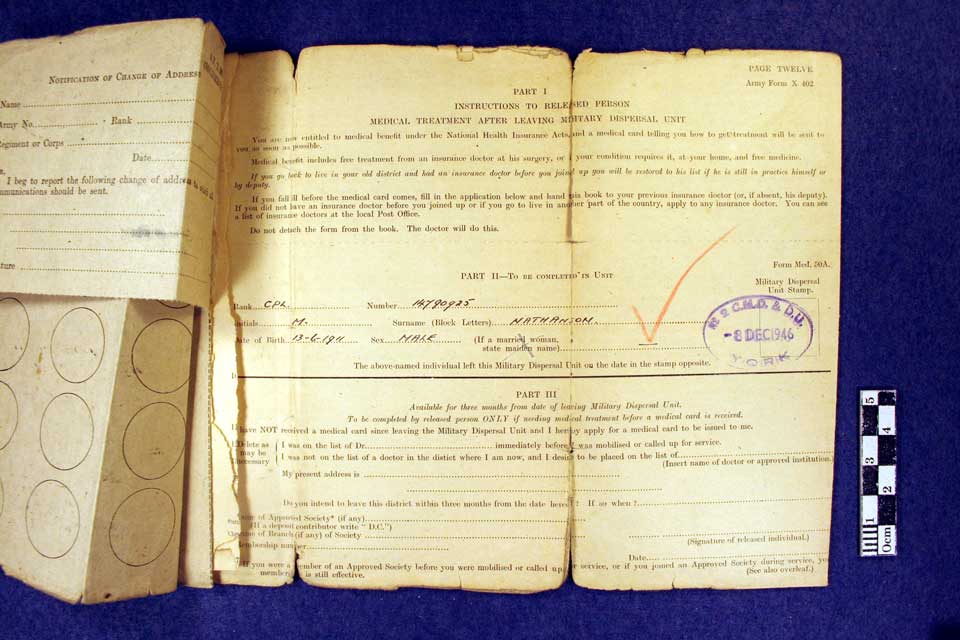 NOTIFICATION OF CHANGE OF ADDRESS
Name
Army No. Rank
Regiment or Corps
Date
I beg to report the following change of address to which all
communications should be sent.
PAGE TWELVE
Army Form X 402
PART I
INSTRUCTIONS TO RELEASED PERSON
MEDICAL TREATMENT AFTER LEAVING MILITARY DISPERSAL UNIT
You are now entitled to medical benefit under the National Health Insurance Acts, and a medical card telling you how to get treatment will be sent to
you as soon as possible.
Medical benefit includes free treatment from an insurance doctor at his surgery, or if your condition requires it, at your home, and free medicine.
If you go back to live in your old district and had an insurance doctor before you joined up you will be restored to his list if he is still in practice himself or
by deputy.
If you fall ill before the medical card comes, fill in the application below and hand this book to your previous insurance doctor (or, if absent, his deputy).
If you did not have an insurance doctor before you joined up or if you go to live in another part of the country, apply to any insurance doctor. You can see
a list of insurance doctors at the local Post Office.
Do not detach the form from the book. The doctor will do this.
Form Med. 50A.
PART II—TO BE COMPLETED IN UNIT
Military Dispersal
Unit Stamp.
Rank CPL Number 14790925
Initials M. Surname (Block Letters) NATHANSON.
Date of Birth 13-6-1911 Sex MALE (If a married woman,
state maiden name)
No 2 C.M.D. & D.U.
-8 DEC 1946
YORK
The above-named individual left this Military Dispersal Unit on the date in the stamp opposite.
PART III
Available for three months from date of leaving Military Dispersal Unit.
To be completed by released person ONLY if needing medical treatment before a medical card is received.
I have NOT received a medical card since leaving the Military Dispersal Unit and I hereby apply for a medical card to be issued to me.
Delete as
may be
necessary
I was on the list of Dr. immediately before I was mobilised or called up for service.
I was not on the list of a doctor in the distict where I am now, and I desire to be placed on the list of
(Insert name of doctor or approved institution.)
My present address is
Do you intend to leave this district within three months from the date hereof? If so when?
Name of Approved Society* (if any)
(If a deposit contributor write "D.C.")
Name of Branch (if any) of Society
(Signature of released individual.)
Membership number
Date
If you were a member of an Approved Society before you were mobilised or called up for service, or if you joined an Approved Society during service, your
membership is still effective. (See also overleaf.)
0cm 1 2 3 4 5